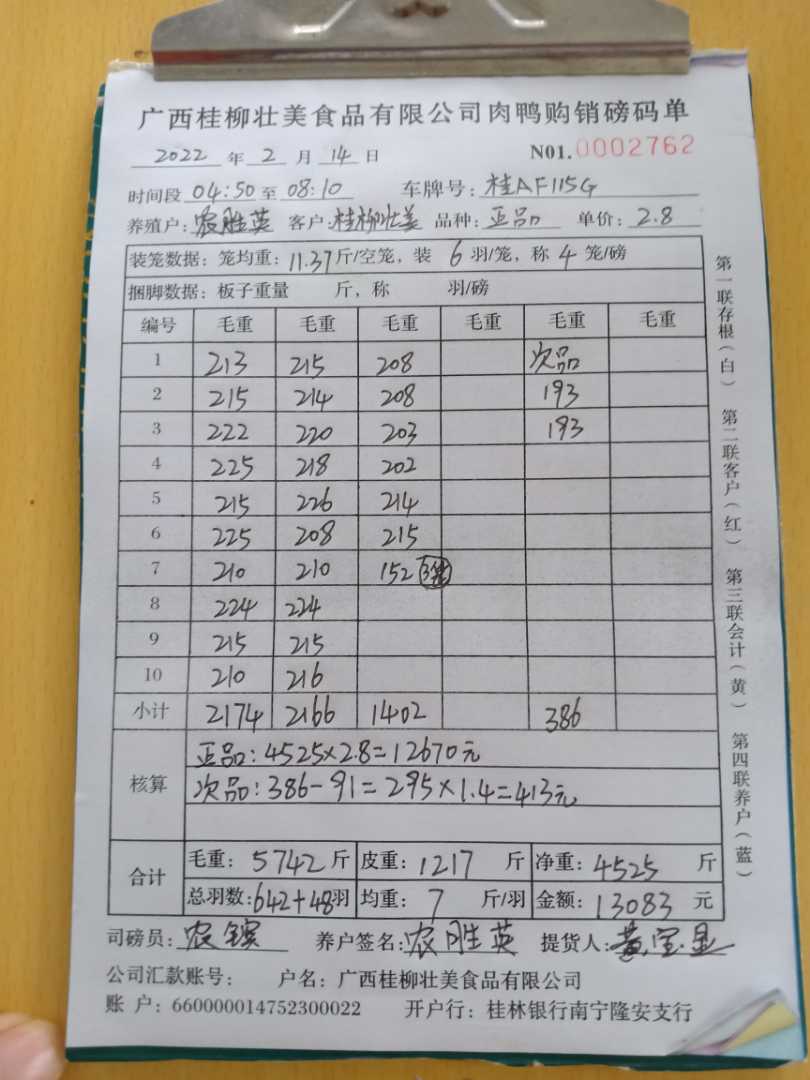 广西桂柳壮美食品有限公司肉鸭购销磅码单
2022 年 2 月 14 日 N01.0002762
时间段 04:50 至 08:10 车牌号：桂AF115G
养殖户：农胜英 客户：桂柳壮美 品种：正品 单价：2.8
装笼数据：笼均重：11.37斤/空笼，装 6 羽/笼，称 4 笼/磅
捆脚数据：板子重量 斤，称 羽/磅
编号 毛重 毛重 毛重 毛重 毛重 毛重
1 213 215 208 次品
2 215 214 208 193
3 222 220 203 193
4 225 218 202
5 215 226 214
6 225 208 215
7 210 210 152 3笼
8 224 224
9 215 215
10 210 216
小计 2174 2166 1402 386
核算
正品：4525×2.8=12670元
次品：386-91=295×1.4=413元
合计
毛重：5742 斤 皮重：1217 斤 净重：4525 斤
总羽数：642+48羽 均重：7 斤/羽 金额：13083 元
司磅员：农 养户签名：农胜英 提货人：黄宝
公司汇款账号： 户名：广西桂柳壮美食品有限公司
账 户：660000014752300022 开户行：桂林银行南宁隆安支行
第一联存根（白） 第二联客户（红） 第三联会计（黄） 第四联养户（蓝）